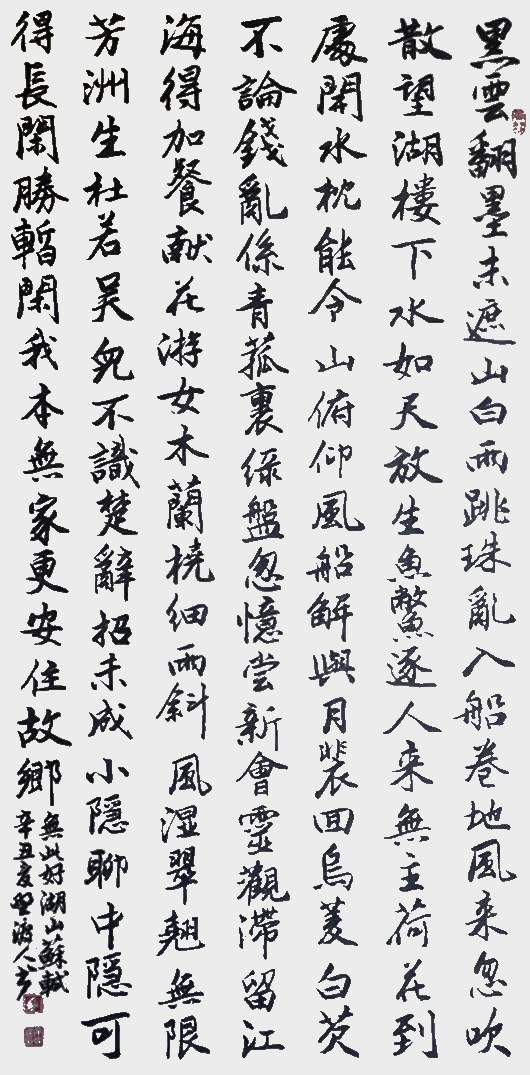 黑雲翻墨未遮山白雨跳珠亂入船卷地風来忽吹
散望湖樓下水如天放生魚鱉逐人来無主荷花到
處開水枕能令山俯仰風船解與月裴回烏菱白芡
不論錢亂係青菰裹綠盤忽憶嘗新會靈觀滯留江
海得加餐献花游女木蘭橈細雨斜風湿翠翹無限
芳洲生杜若吳兒不識楚辭招未成小隱聊中隱可
得長閑勝暫閑我本無家更安住故鄉
無此好湖山蘇軾
辛丑夏野渡人書